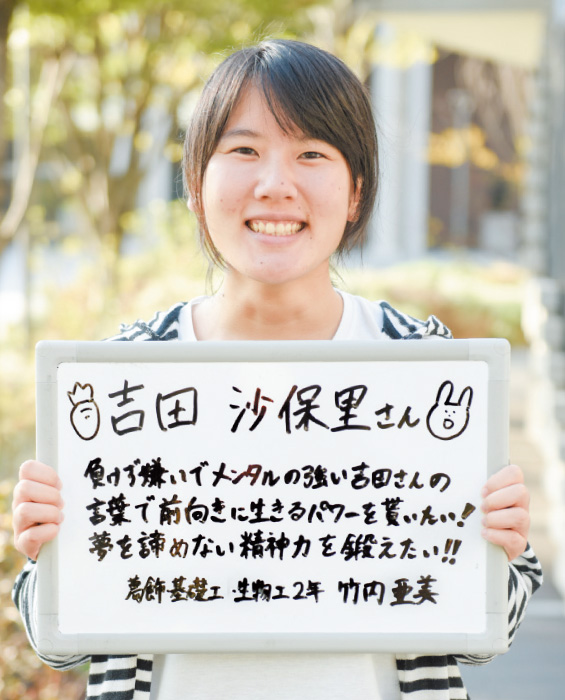 吉田 沙保里さん
負けず嫌いでメンタルの強い吉田さんの
言葉で前向きに生きるパワーを貰いたい!
夢を諦めない精神力を鍛えたい!!
葛飾基礎工・生物工2年 竹内 亜美